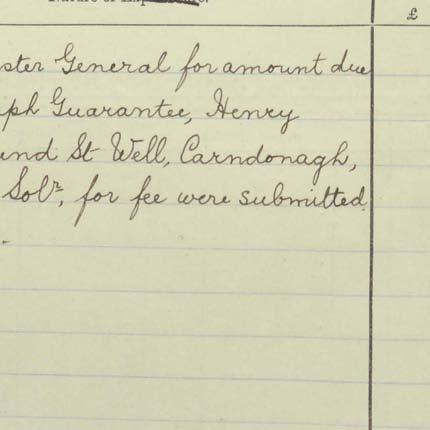 £
ster General for amount due
ph Guarantee, Henry
und St Well, Carndonagh,
Solr, for fee were submitted.